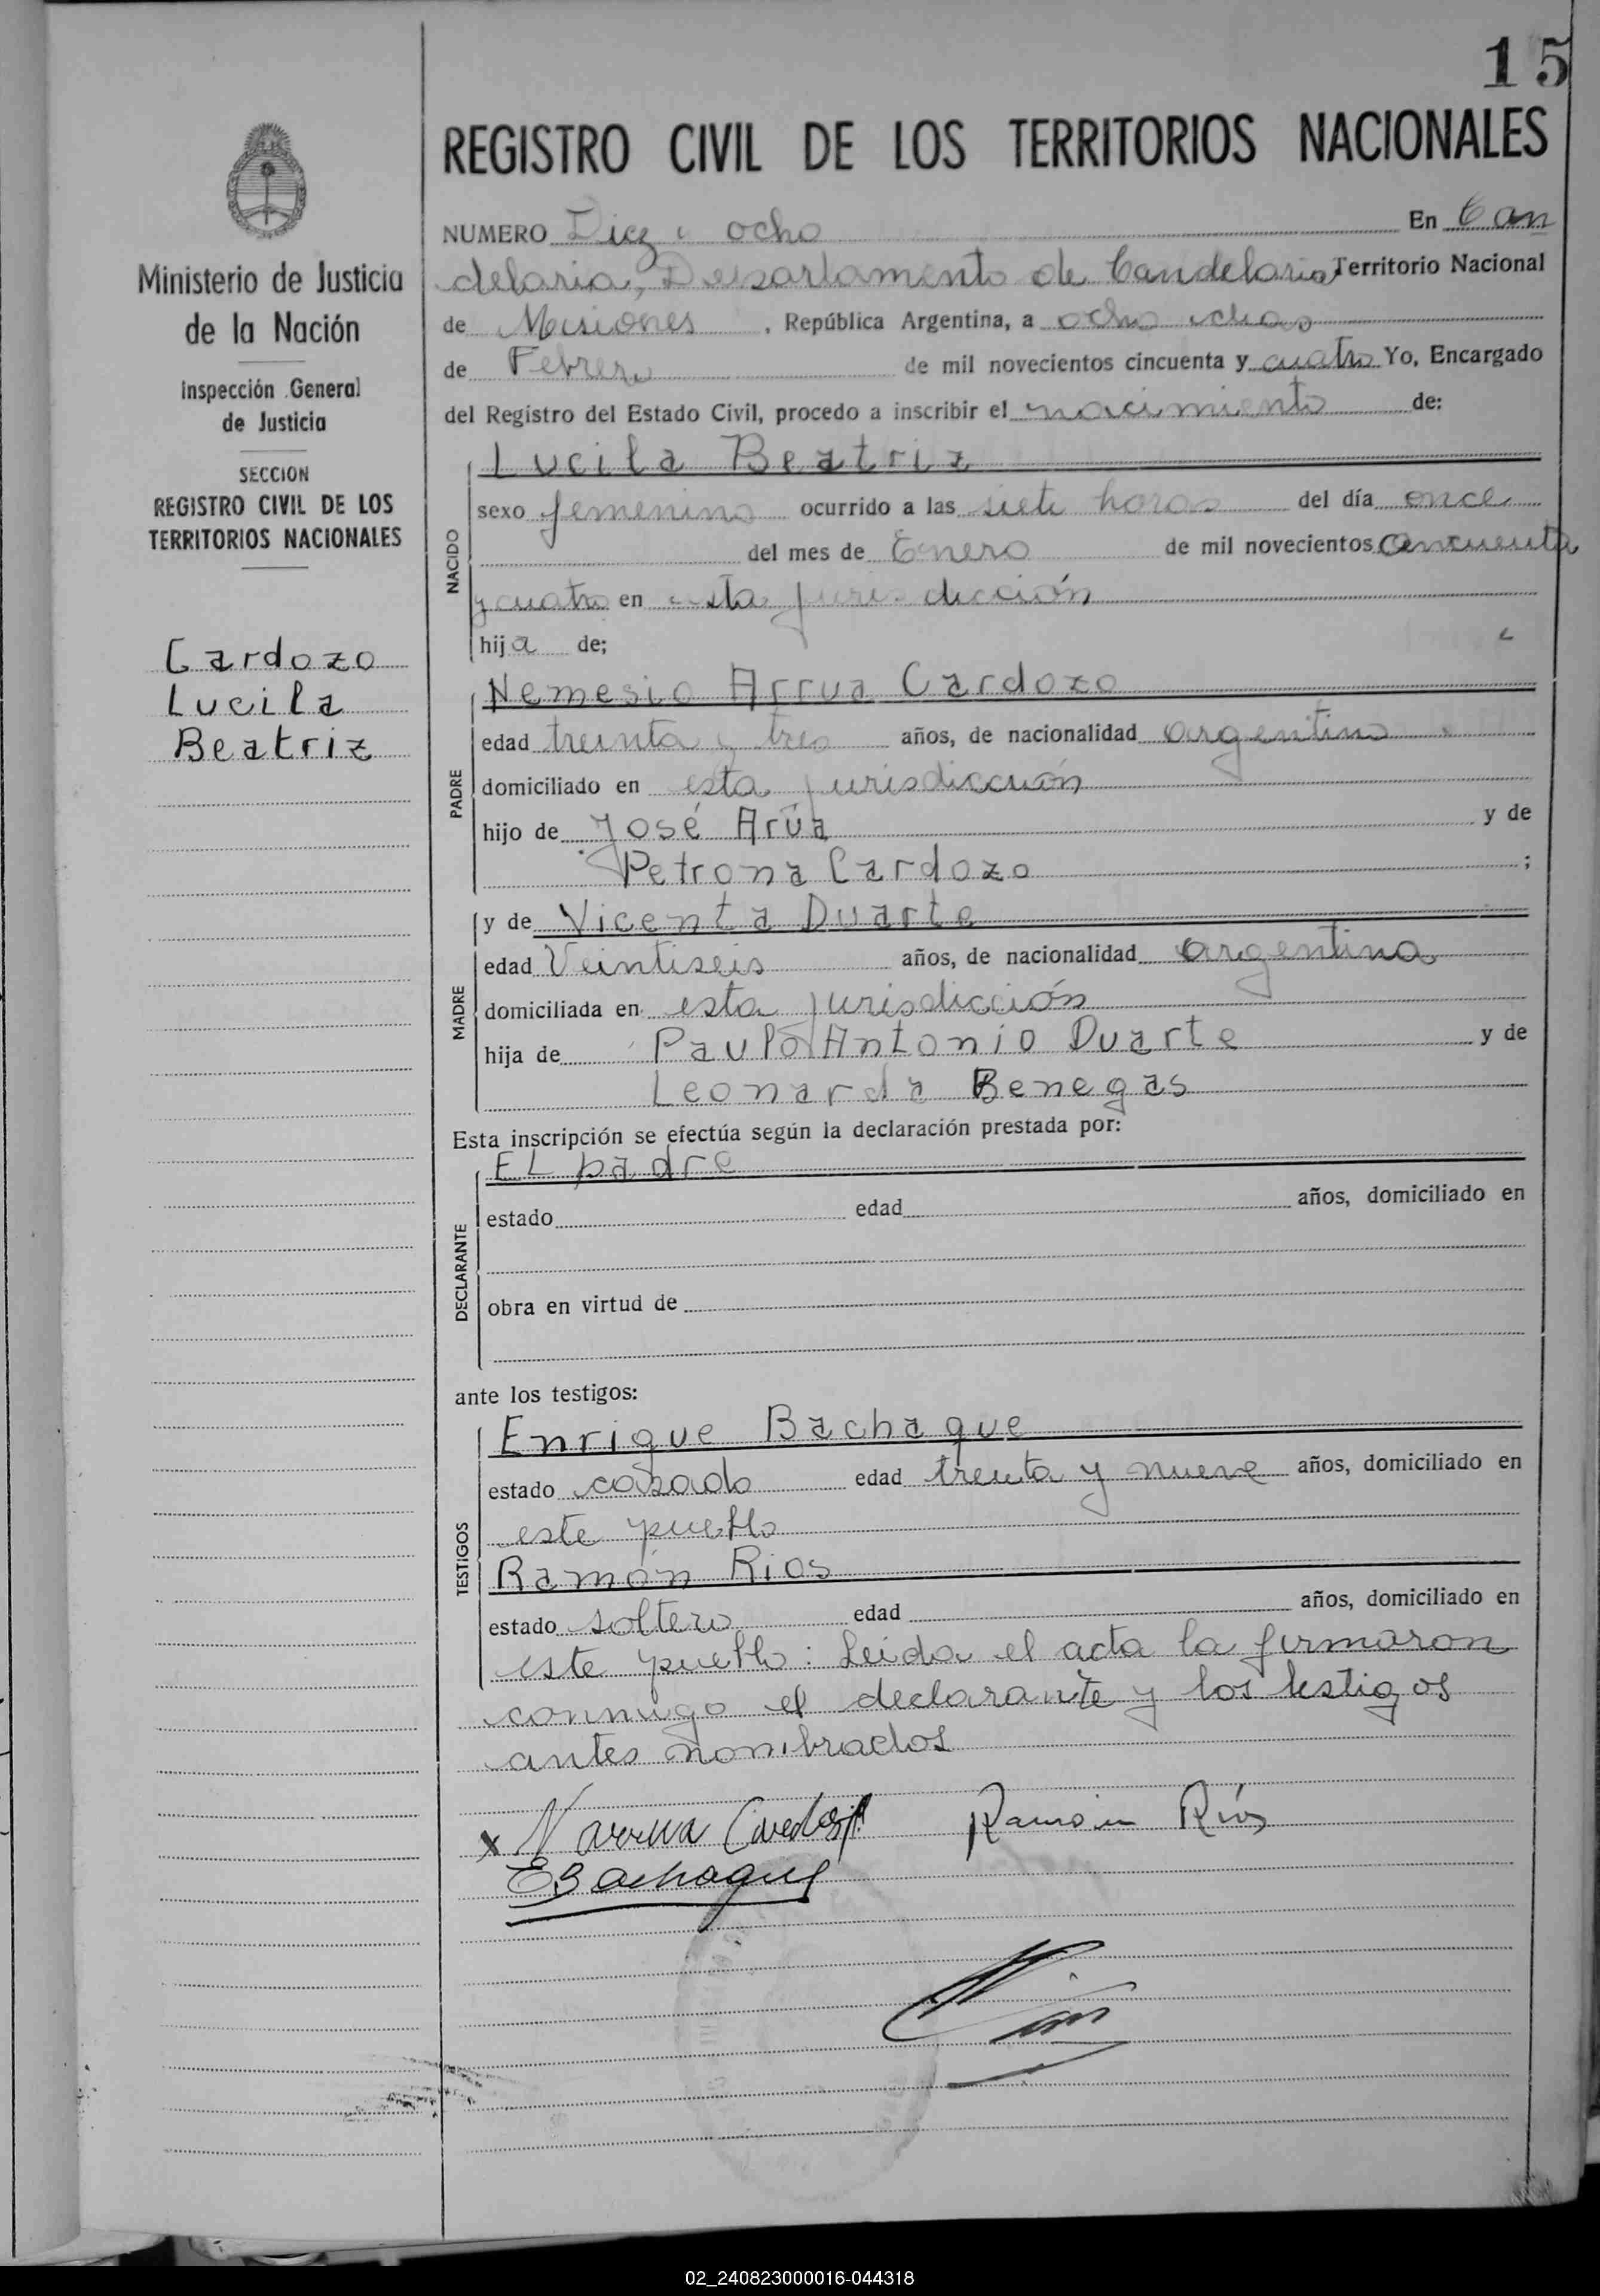 15
REGISTRO CIVIL DE LOS TERRITORIOS NACIONALES
Ministerio de Justicia
de la Nación
Inspección General
de Justicia
SECCION
REGISTRO CIVIL DE LOS
TERRITORIOS NACIONALES
Cardozo
Lucila
Beatriz
NUMERO Diez i ocho En Can
delaria, Departamento de Candelaria Territorio Nacional
de Misiones , República Argentina, a ocho
de Febrero de mil novecientos cincuenta y cuatro Yo, Encargado
del Registro del Estado Civil, procedo a inscribir el nacimiento de:
NACIDO
Lucila Beatriz
sexo femenino ocurrido a las siete horas del día once
del mes de Enero de mil novecientos cincuenta
y cuatro en esta jurisdicción
hija de;
PADRE
Nemesio Arrua Cardozo
edad treinta y tres años, de nacionalidad argentino
domiciliado en esta jurisdicción
hijo de José Arúa y de
Petrona Cardozo ;
MADRE
y de Vicenta Duarte
edad Veintiseis años, de nacionalidad argentina
domiciliada en esta jurisdicción
hija de Antonio Duarte y de
Leonarda Benegas
Esta inscripción se efectúa según la declaración prestada por:
DECLARANTE
El padre
estado edad años, domiciliado en
obra en virtud de
ante los testigos:
TESTIGOS
Enrique Bachaque
estado casado edad treinta y nueve años, domiciliado en
este pueblo
Ramón Rios
estado soltero edad años, domiciliado en
este pueblo: Leida el acta la firmaron
conmigo el declarante y los testigos
antes nombrados
x N Arrua Cardozo Ramón Ríos
EBachaque
02_240823000016-044318